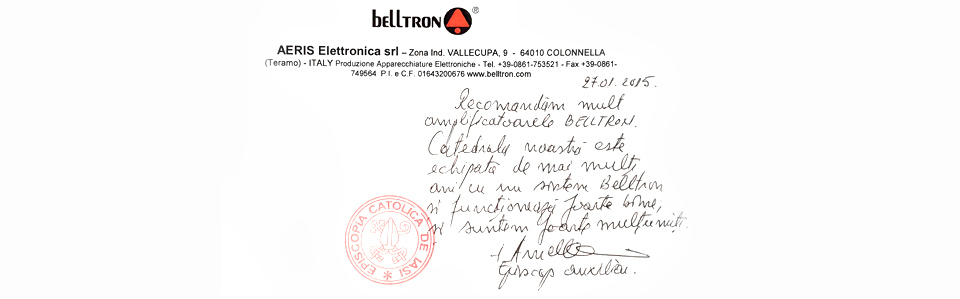 bellTRON
AERIS Elettronica srl – Zona Ind. VALLECUPA, 9 - 64010 COLONNELLA
(Teramo) - ITALY Produzione Apparecchiature Elettroniche - Tel. +39-0861-753521 - Fax +39-0861-
749564 P.I. e C.F. 01643200676 www.belltron.com
27.01.2015.
Recomandăm mult
amplificatoarele BELLTRON.
Catedrala noastră este
echipată de mai mulți
ani cu un sistem Belltron
și funcționează foarte bine,
și suntem foarte mulțumiți.
Episcop auxiliar.
EPISCOPIA CATOLICA DE IASI